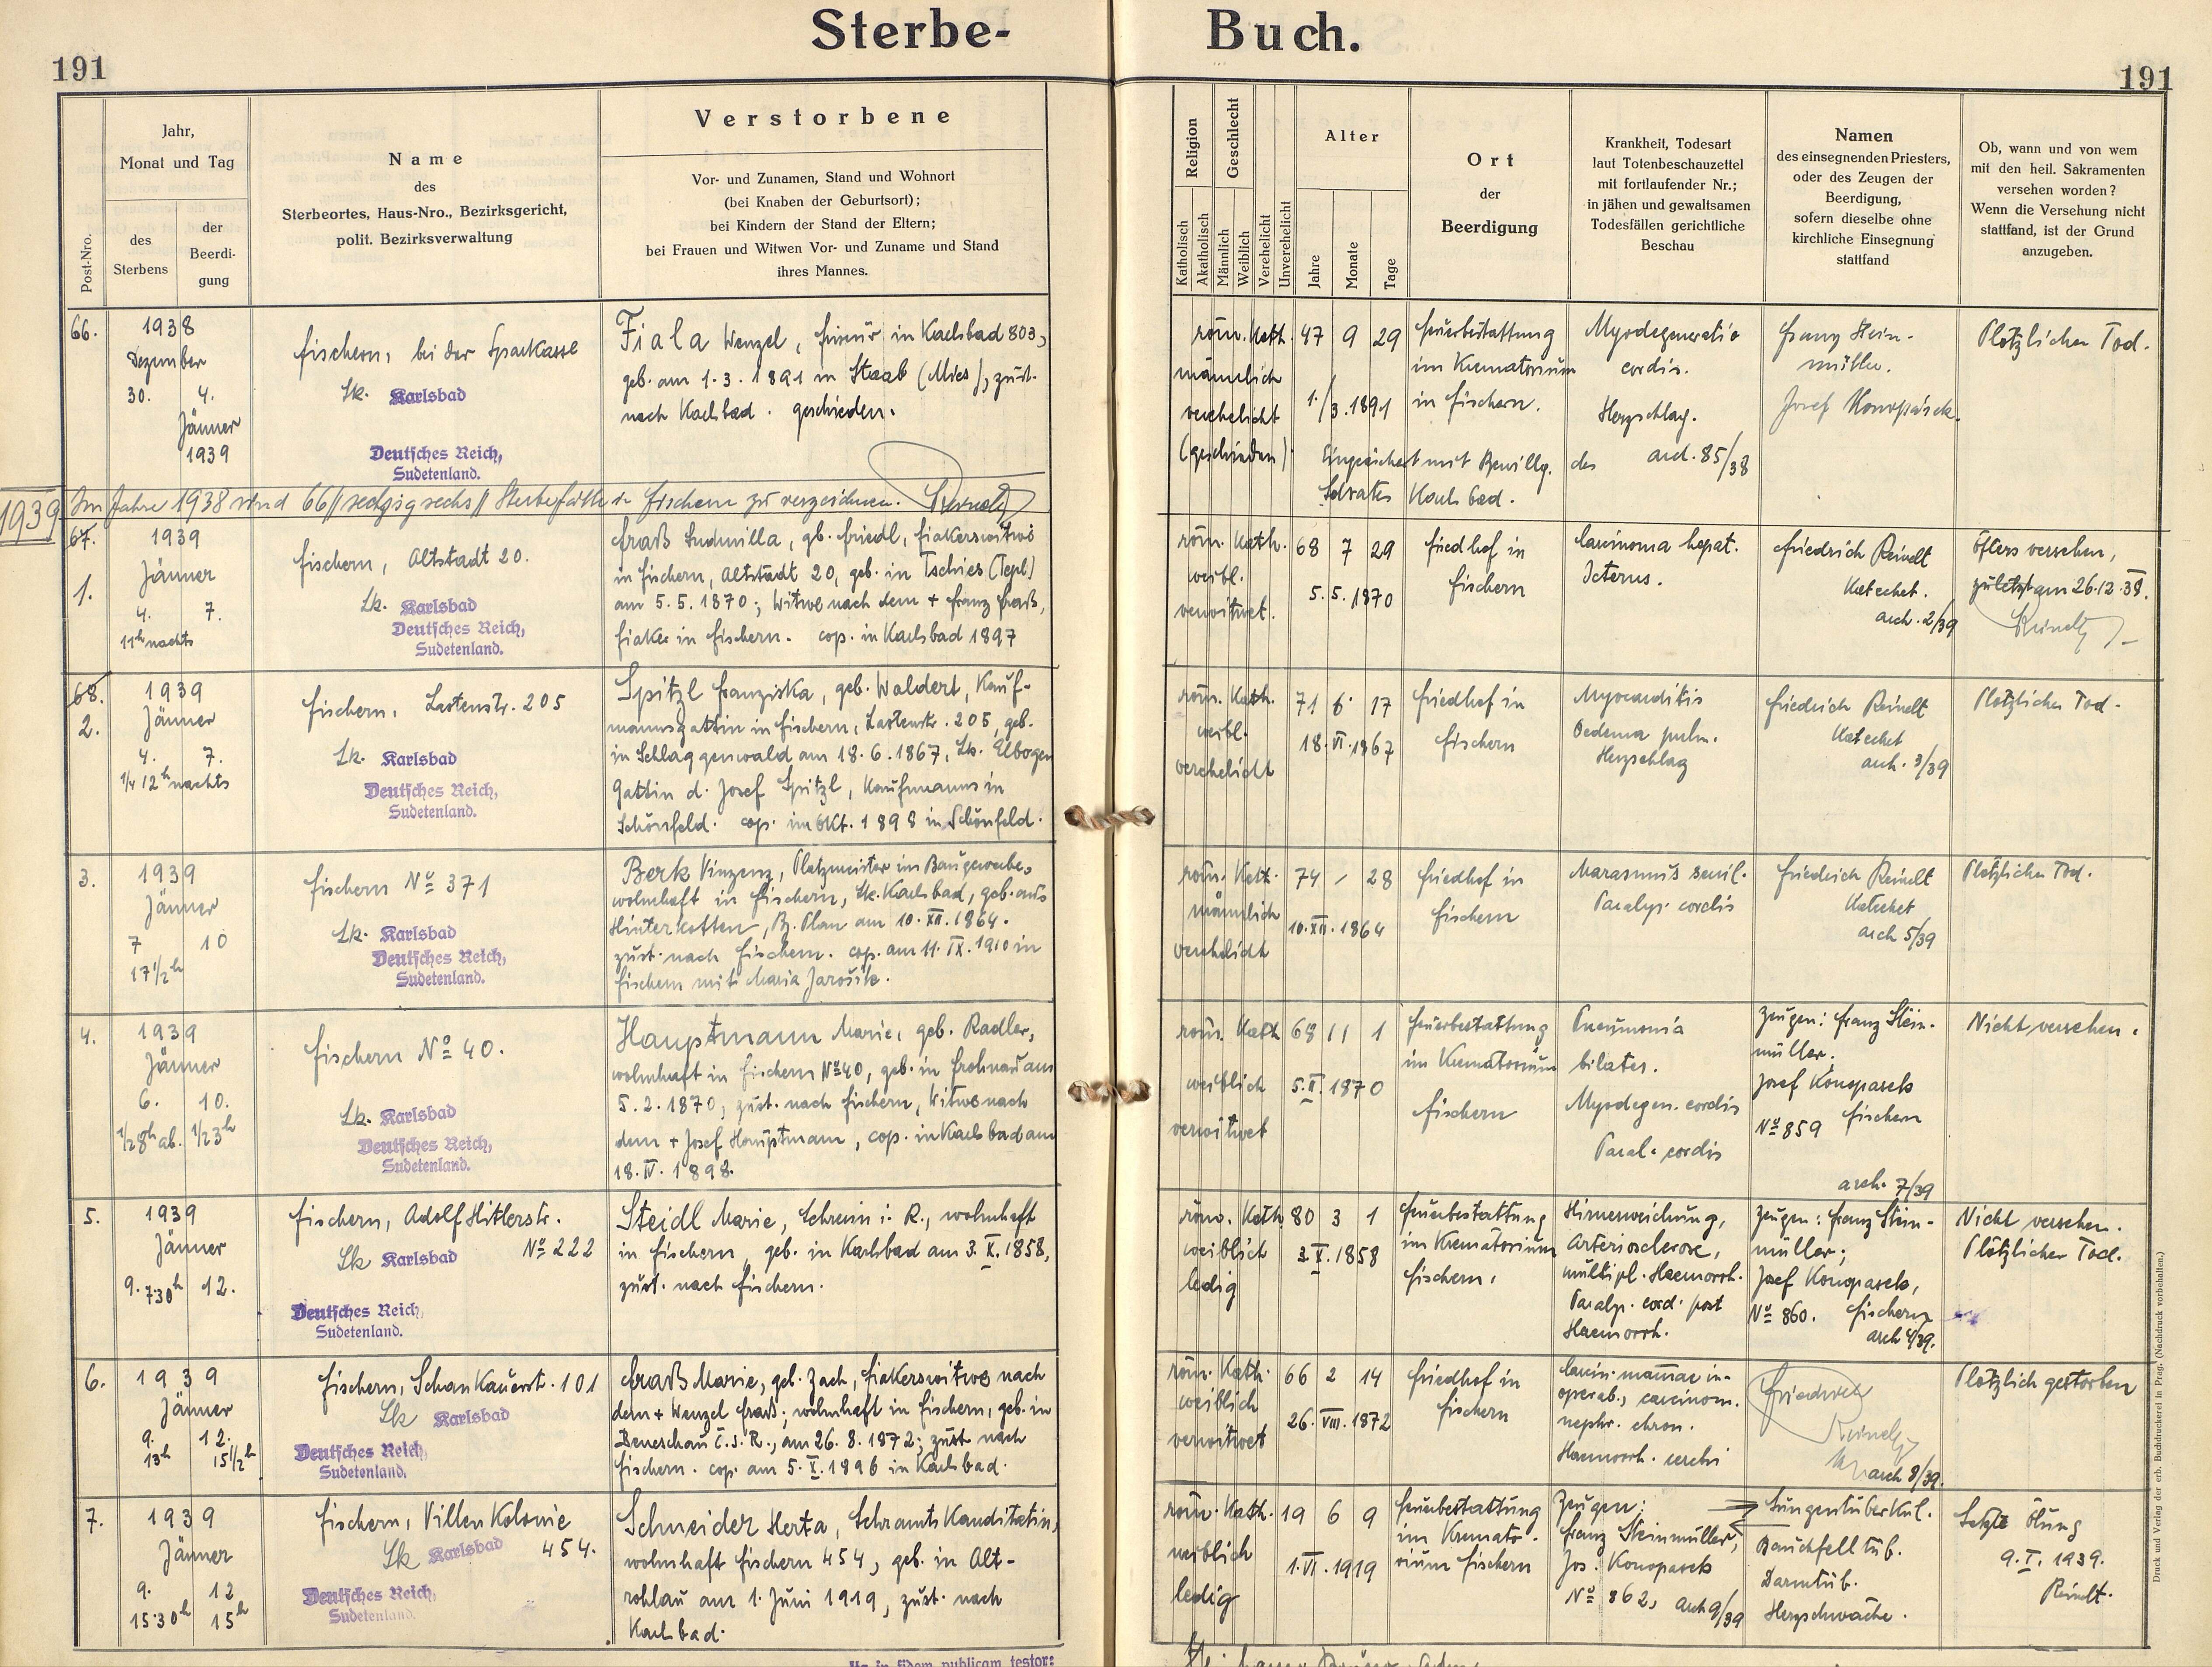 Sterbe- Buch.
191
191
Post-Nro.
Jahr,
Monat und Tag
des
Sterbens
der
Beerdi-
gung
Name
des
Sterbeortes, Haus-Nro., Bezirksgericht,
polit. Bezirksverwaltung
Verstorbene
Vor- und Zunamen, Stand und Wohnort
(bei Knaben der Geburtsort);
bei Kindern der Stand der Eltern;
bei Frauen und Witwen Vor- und Zuname und Stand
ihres Mannes.
Religion
Katholisch
Akatholisch
Geschlecht
Männlich
Weiblich
Verehelicht
Unverehelicht
Alter
Jahre
Monate
Tage
Ort
der
Beerdigung
Krankheit, Todesart
laut Totenbeschauzettel
mit fortlaufender Nr.;
in jähen und gewaltsamen
Todesfällen gerichtliche
Beschau
Namen
des einsegnenden Priesters,
oder des Zeugen der
Beerdigung,
sofern dieselbe ohne
kirchliche Einsegnung
stattfand
Ob, wann und von wem
mit den heil. Sakramenten
versehen worden?
Wenn die Versehung nicht
stattfand, ist der Grund
anzugeben.
66.
1938
Dezember
30. 4.
Jänner
1939
Fischern, bei der Sparkasse
Lk. Karlsbad
Deutsches Reich,
Sudetenland.
Fiala Wenzel, Friseur in Karlsbad 803,
geb. am 1.3.1891 in Staab (Mies), zust.
nach Karlsbad. geschieden.
röm. Kath. 47 9 29
männlich
verehelicht 1./3.1891
(geschieden)
Feuerbestattung
im Krematorium
in Fischern.
Eingeäschert mit Bewillg. des
Ldrates Karlsbad.
Myodegeneratio
cordis.
Herzschlag.
arch. 85/38
Franz Stein-
müller.
Josef Konopasek.
Plötzlicher Tod.
1939
Im Jahre 1938 sind 66 //sechzigsechs// Sterbefälle in Fischern zu verzeichnen. Reindl
67.
1.
1939
Jänner
4. 7.
11h nachts
Fischern, Altstadt 20.
Lk. Karlsbad
Deutsches Reich,
Sudetenland.
Fraß Ludmilla, gb. Friedl, Fiakerswitwe
in Fischern, Altstadt 20, geb. in Tschies (Tepl)
am 5.5.1870; Witwe nach dem + Franz Fraß,
Fiaker in Fischern. cop. in Karlsbad 1897
röm. Kath. 68 7 29
weibl.
verwitwet. 5.5.1870
Friedhof in
Fischern
Carcinoma hepat.
Icterus.
Friedrich Reindl
Katechet.
arch. 2/39
Öfters versehen,
zuletzt am 26.12.38.
Reindl
68.
2.
1939
Jänner
4. 7.
1/4 12h nachts
Fischern, Lastenstr. 205
Lk. Karlsbad
Deutsches Reich,
Sudetenland.
Spitzl Franziska, geb. Waldert, Kauf-
mannsgattin in Fischern, Lastenstr. 205, geb.
in Schlaggenwald am 18.6.1867, Lk. Elbogen
Gattin d. Josef Spitzl, Kaufmanns in
Schönfeld. cop. im Okt. 1898 in Schönfeld.
röm. Kath. 71 6 17
weibl.
verehelicht 18.VI.1867
Friedhof in
Fischern
Myocarditis
Oedema pulm.
Herzschlag
Friedrich Reindl
Katechet
arch. 3/39
Plötzlicher Tod.
3.
1939
Jänner
7 10
17 1/2h
Fischern No 371
Lk. Karlsbad
Deutsches Reich,
Sudetenland.
Berk Vinzenz, Platzmeister im Baugewerbe,
wohnhaft in Fischern, Lk. Karlsbad, geb. aus
Hinterkotten, Bz. Plan am 10.XII.1864.
zust. nach Fischern. cop. am 11.IX.1910 in
Fischern mit Maria Jarosik.
röm. Kath. 74 / 28
männlich
verehelicht 10.XII.1864
Friedhof in
Fischern
Marasmus senil.
Paralys. cordis
Friedrich Reindl
Katechet
arch 5/39
Plötzlicher Tod.
4.
1939
Jänner
6. 10.
1/2 8h ab. 1/2 3h
Fischern No 40.
Lk. Karlsbad
Deutsches Reich,
Sudetenland.
Hauptmann Marie, geb. Radler,
wohnhaft in Fischern No 40, geb. in Frohnau am
5.2.1870, zust. nach Fischern, Witwe nach
dem + Josef Hauptmann, cop. in Karlsbad am
18.IV.1898.
röm. Kath 68 11 1
weiblich 5.II.1870
verwitwet
Feuerbestattung
im Krematorium
Fischern
Pneumonia
bilater.
Myodegen. cordis
Paral. cordis
Zeugen: Franz Stein-
müller.
Josef Konopasek
No 859 Fischern
arch. 7/39
Nicht versehen.
5.
1939
Jänner
9. 7.30h 12.
Fischern, Adolf Hitlerstr.
No 222
Lk Karlsbad
Deutsches Reich,
Sudetenland.
Steidl Marie, Lehrerin i. R., wohnhaft
in Fischern, geb. in Karlsbad am 3.X.1858,
zust. nach Fischern.
röm. Kath 80 3 1
weiblich 3.X.1858
ledig
Feuerbestattung
im Krematorium
Fischern.
Hirnerweichung,
Arteriosclerose,
multipl. Haemorrh.
Paralys. cord. post
Haemorrh.
Zeugen: Franz Stein-
müller;
Josef Konopasek,
No 860. Fischern
arch 4/39.
Nicht versehen.
Plötzlicher Tod.
6.
1939
Jänner
9. 12.
13h 15 1/2h
Fischern, Schankauerstr. 101
Lk Karlsbad
Deutsches Reich,
Sudetenland.
Fraß Marie, geb. Zach, Fiakerswitwe nach
dem + Wenzel Fraß; wohnhaft in Fischern, geb. in
Beneschau Č.S.R., am 26.8.1872; zust nach
Fischern. cop. am 5.X.1896 in Karlsbad.
röm. Kath. 66 2 14
weiblich
verwitwet 26.VIII.1872
Friedhof in
Fischern
Carcin. mammae in-
operab., carcinom.
nephr. chron.
Haemorrh. cerebri
Friedrich
Reindl
arch 8/39.
Plötzlich gestorben
7.
1939
Jänner
9. 12
15.30h 15h
Fischern, Villen Kolonie
454.
Lk Karlsbad
Deutsches Reich,
Sudetenland.
Schneider Herta, Lehramts Kanditatin,
wohnhaft Fischern 454, geb. in Alt-
rohlau am 1. Juni 1919, zust. nach
Karlsbad.
röm. Kath. 19 6 9
weiblich 1.VI.1919
ledig
Feuerbestattung
im Kremato-
rium Fischern
Zeugen:
Franz Steinmüller,
Jos. Konopasek
No 862, arch 9/39
Lungentuberkul.
Bauchfelltub.
Darmtub.
Herzschwäche.
Letzte Ölung
9.I.1939.
Reindl.
in fidem publicam testor:
Druck und Verlag der erb. Buchdruckerei in Prag. (Nachdruck vorbehalten.)